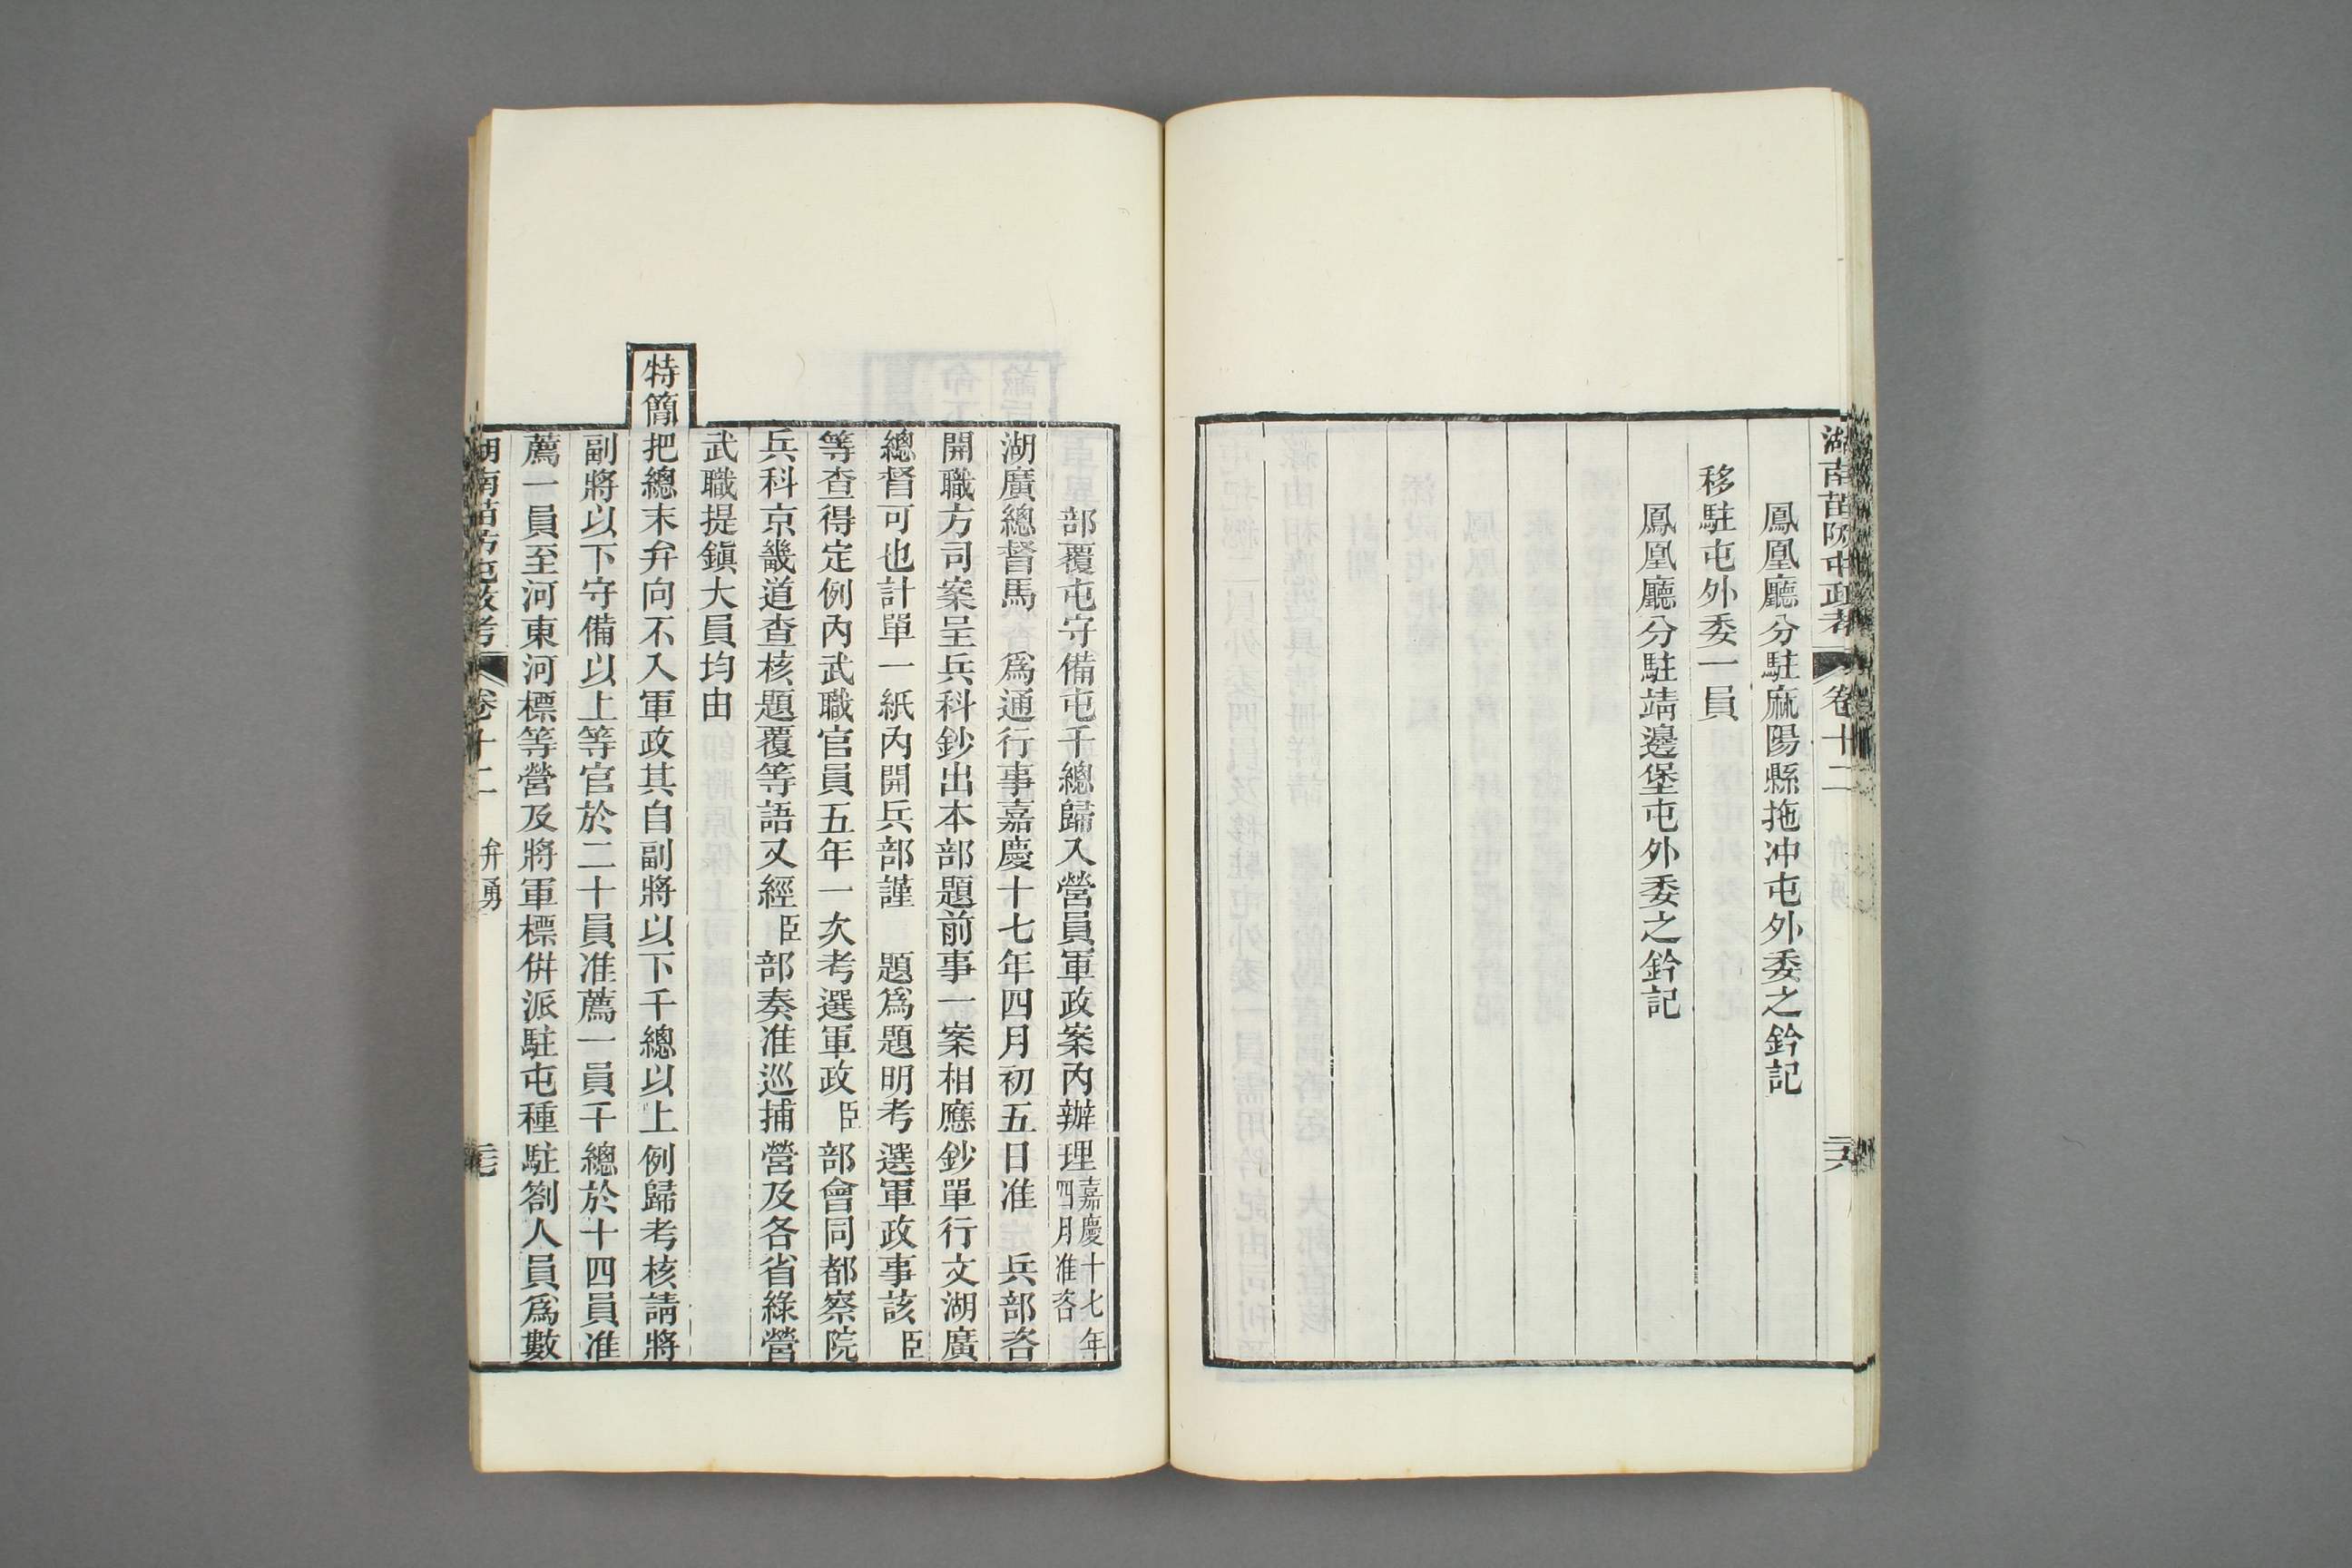 湖南苗防屯政考 卷十二 二十六
鳳凰廳分駐麻陽縣拖冲屯外委之鈐記
移駐屯外委一員
鳳凰廳分駐靖邊堡屯外委之鈐記
部覆屯守備屯千總歸入營員軍政案內辦理嘉慶十七年四月准咨
湖廣總督馬 咨爲通行事嘉慶十七年四月初五日准 兵部咨
開職方司案呈兵科鈔出本部題前事一案相應鈔單行文湖廣
總督可也計單一紙內開兵部謹 題爲題明考選軍政事該臣
等查得定例內武職官員五年一次考選軍政臣部會同都察院
兵科京畿道查核題覆等語又經臣部奏准巡捕營及各省綠營
武職提鎮大員均由
特簡把總末弁向不入軍政其自副將以下千總以上例歸考核請將
副將以下守備以上等官於二十員准薦一員千總於十四員准
薦一員至河東河標等營及將軍標併派駐屯種駐劄人員爲數
湖南苗防屯政考 卷十二 弁勇 二十七